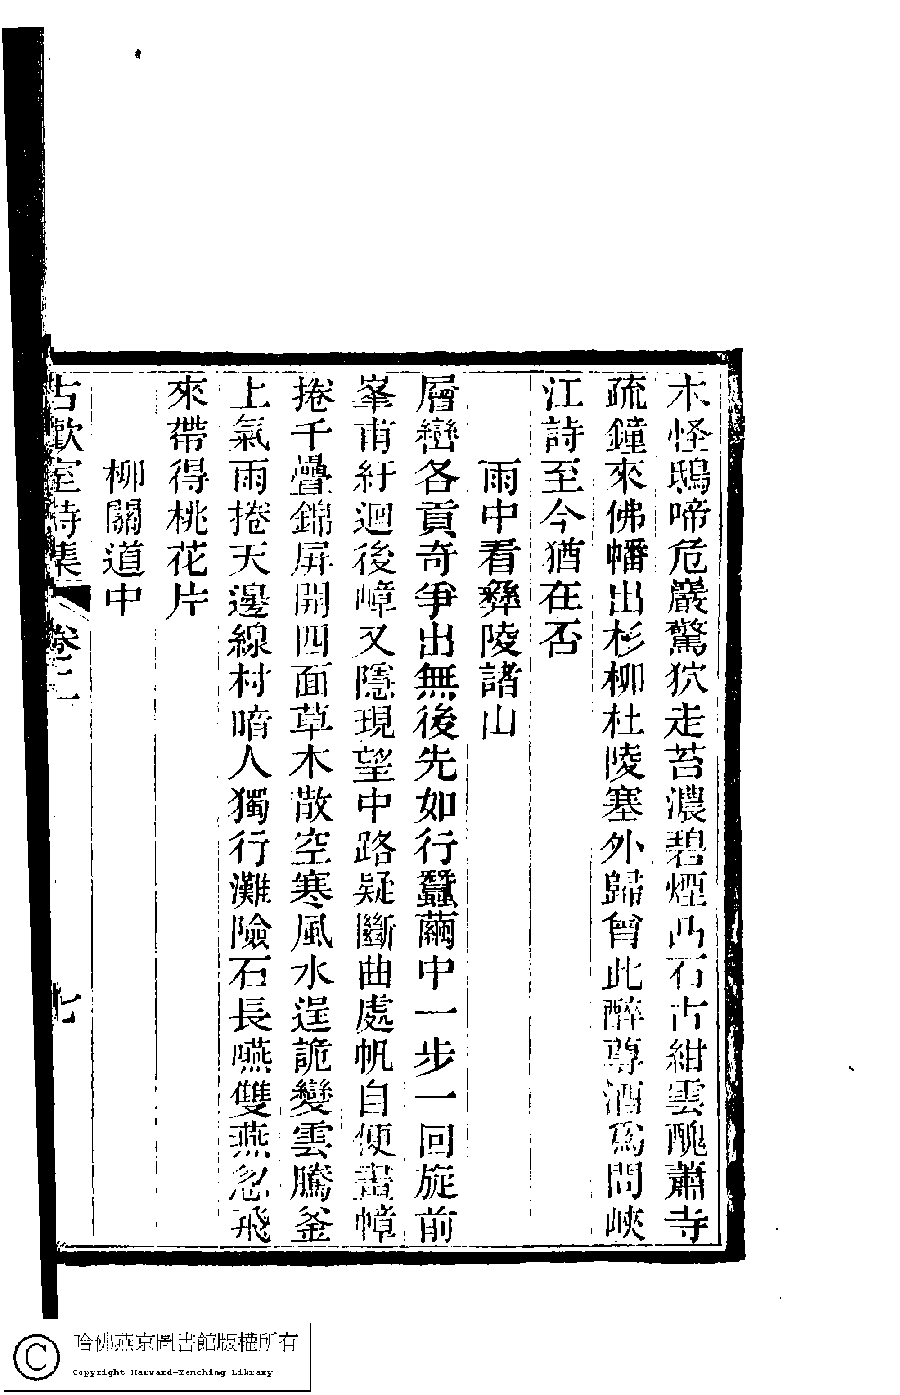 木怪鴟啼危巖驚狖走苔濃碧煙凸石古紺雲醜蕭寺
疏鐘來佛幡出杉柳杜陵塞外歸曾此醉尊酒爲問峽
江詩至今猶在否
雨中看彝陵諸山
層巒各貢奇爭出無後先如行蠶繭中一步一回旋前
峯甫紆迴後嶂又隱現望中路疑斷曲處帆自便畫幛
捲千疊錦屏開四面草木散空寒風水逞詭變雲騰釜
上氣雨捲天邊線村暗人獨行灘險石長嚥雙燕忽飛
來帶得桃花片
柳關道中
古歡室詩集 卷二 七
哈佛燕京圖書館版權所有
Copyright Harvard-Yenching Library